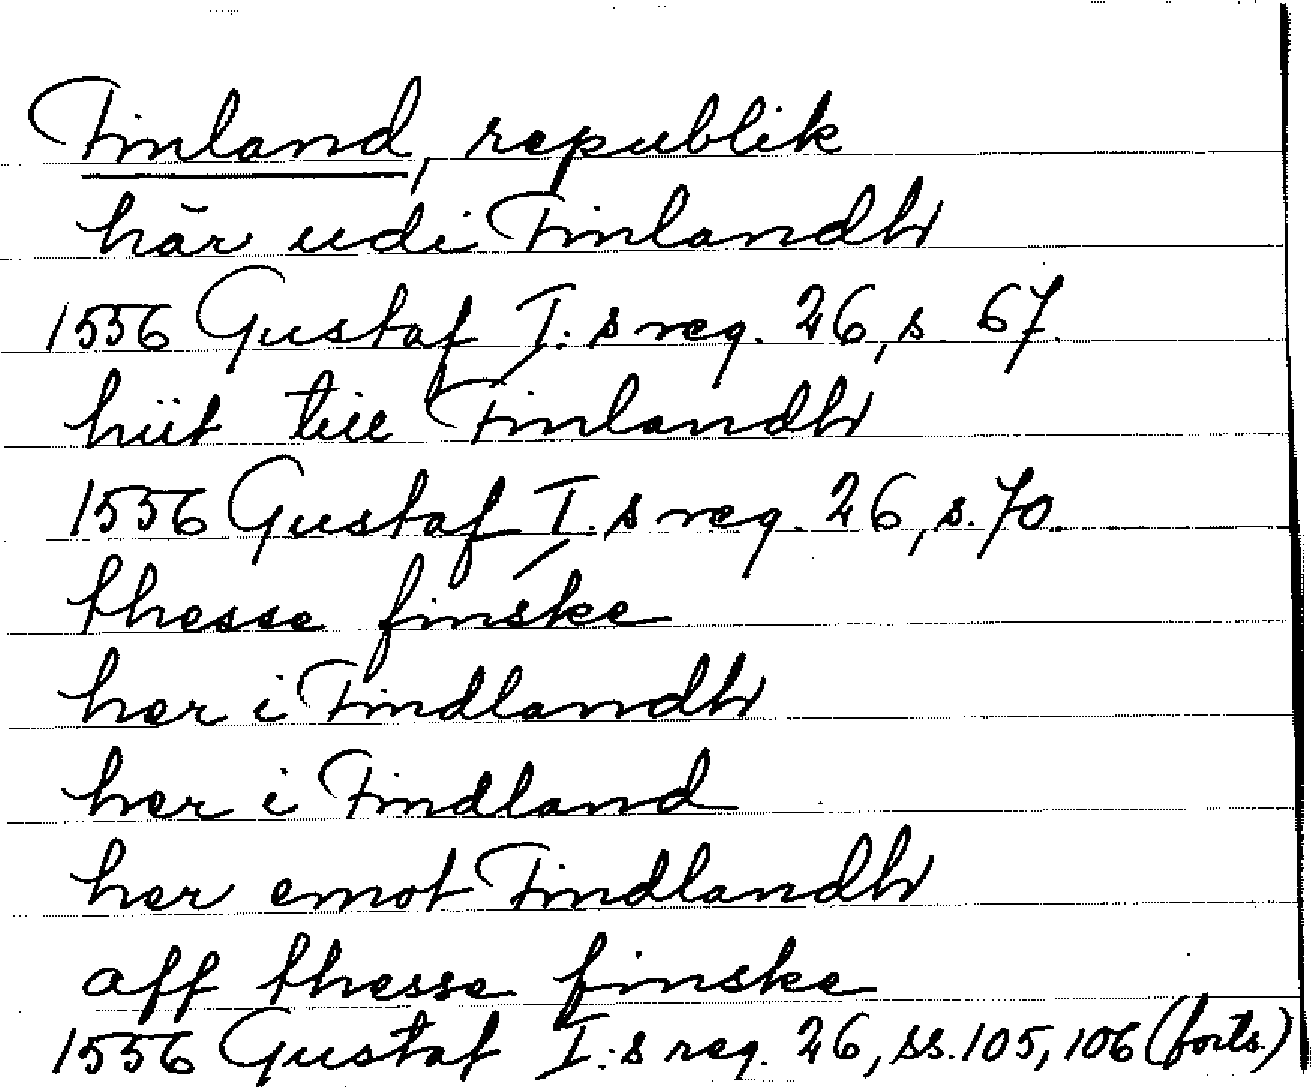 Finland, republik
här udi Finlandh
1556 Gustaf I:s reg. 26, s. 67.
hiit till Finlandh
1556 Gustaf I:s reg. 26, s. 70.
thesse finske
her i Findlandh
her i Findland
her emot Findlandh
aff thesse finske
1556 Gustaf I:s reg. 26, ss. 105, 106 (forts.)